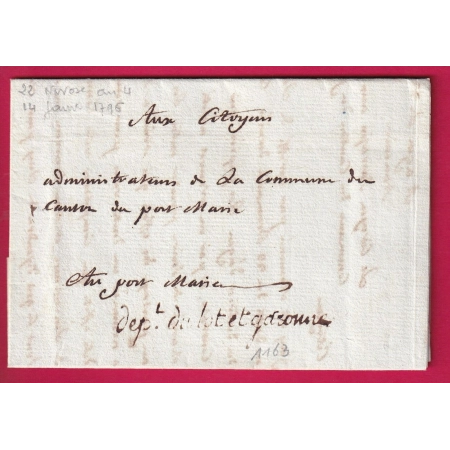 22 Nivose an 4
14 Janv 1796
Aux Citoyens
administrateurs de La Commune du
Canton du port Marie
Au port Marie
dept. du lot et garonne
1163